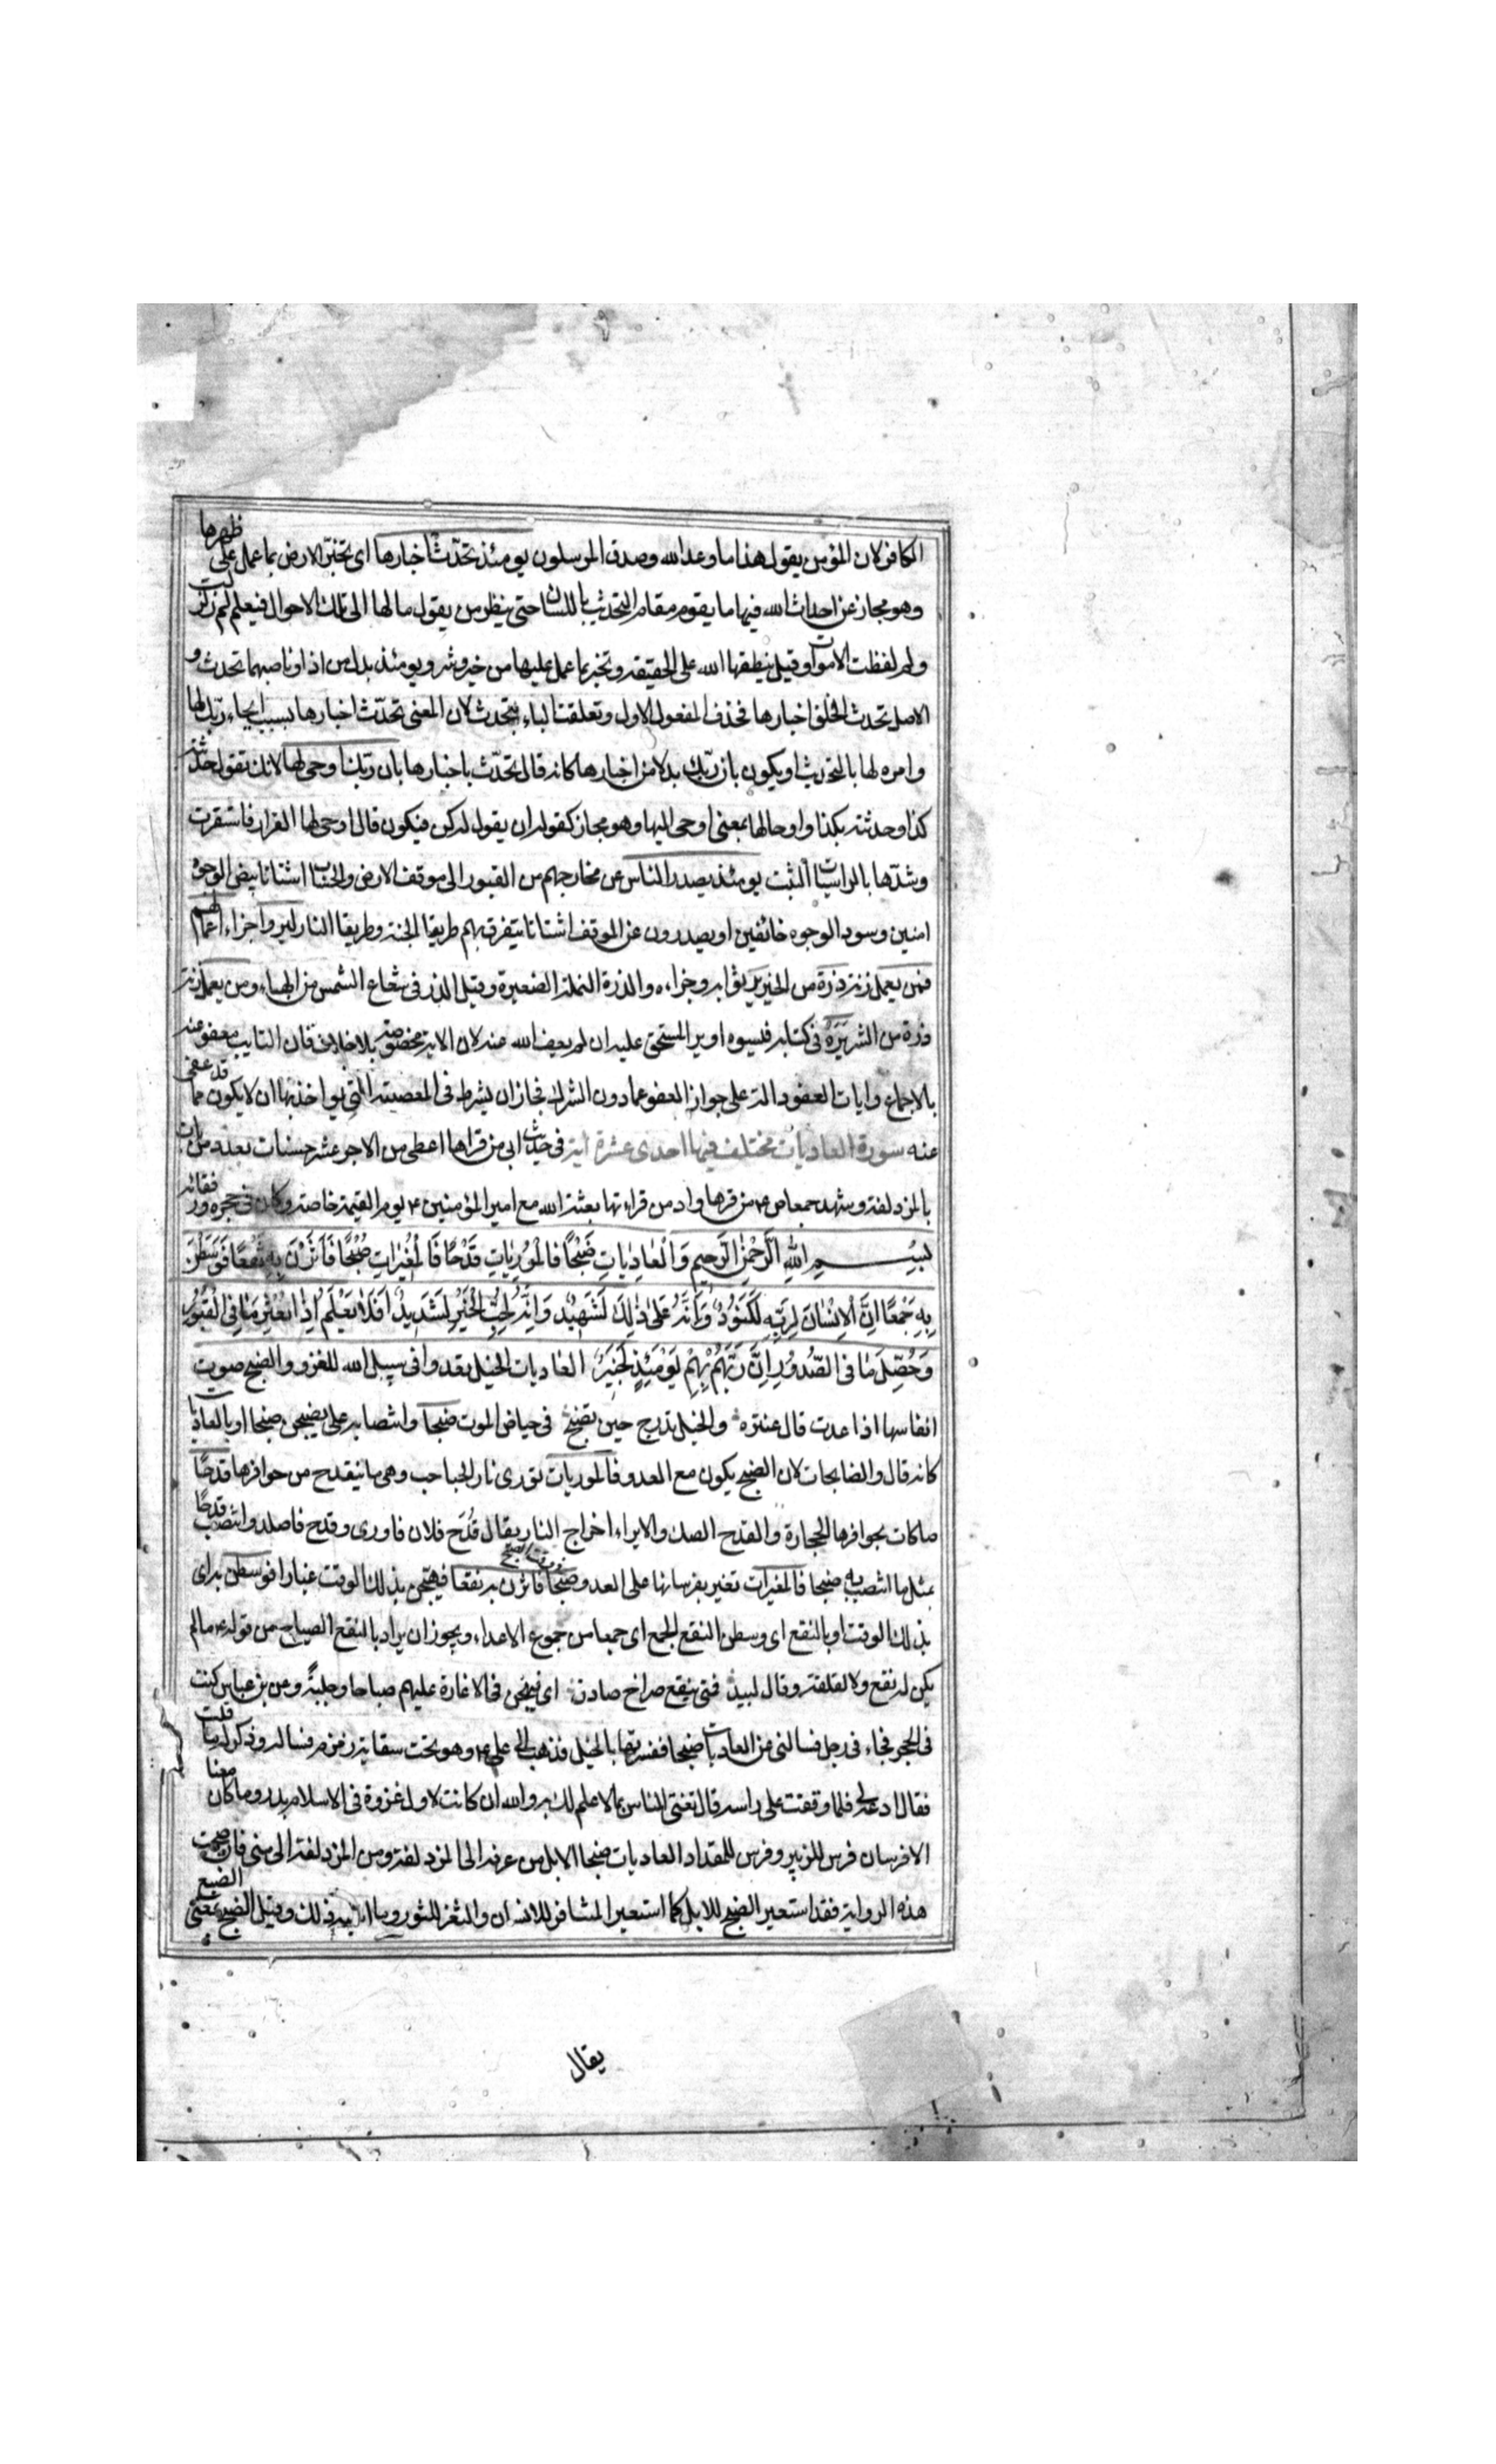 الكافر لان المؤمن يقول هذا ما وعد الله وصدق المرسلون يومئذ تحدّث اخبارها اى تخبّر الارض بما عمل على ظهرها
وهو مجاز عن احداث الله فيها ما يقوم مقام التحديث باللسان حتى ينظر من يقول مالها الى تلك الاحوال فيعلم لم زلزلت
ولم لفظت الاموات وقيل ينطقها الله على الحقيقة وتخبر بما عمل عليها من خير وشر ويومئذ بدل من اذا وناصبهما تحدث و
الاصل تحدث الخلق اخبارها فحذف المفعول الاول وتعلقت الباء بتحدث لان المعنى تحدّث اخبارها بسبب ايحاء ربّك لها
وامره لها بالتحديث او يكون بان ربّك بدلا من اخبارها كانه قال تحدّث باخبارها بان ربّك اوحى لها لانك تقول حدثته
كذا وحدثته بكذا واوحى لها بمعنى اوحى اليها وهو مجاز كقوله ان يقول له كن فيكون قال اوحى لها القرار فاستقرت
وشدّها بالراسيات الثبت يومئذ يصدر الناس عن مخارجهم من القبور الى موقف الارض والحساب اشتاتا بيض الوجوه
امنين وسود الوجوه خائفين او يصدرون عن الموقف اشتاتا يتفرق بهم طريقا الجنة وطريقا النار ليروا جزاء اعمالهم
فمن يعمل زنة ذرة من الخير ير ثوابه وجزاءه والذرة النملة الصغيرة وقيل الذر فى شعاع الشمس من الهباء ومن يعمل زنة
ذرة من الشر يَرَهُ فى كتابه فيسوه او ير المستحق عليه ان لم يعف الله عنه لان الاية مخصوصة بلا خلاف فان التايب معفو عنه
بالاجماع وايات العفو دالة على جواز العفو عما دون الشرك فجاز ان يشرط فى المعصية التى يواخذ بها ان لا يكون مما قد عفى
عنه سورة العاديات مختلف فيها احدى عشرة اية فى حديث ابى من قراها اعطى من الاجر عشر حسنات بعدد من بات
بالمزدلفة وشهد جمعا ص من قرها وادمن قراءتها بعثه الله مع امير المؤمنين ع يوم القيمة خاصة وكان فى حجره ورفقائه
بسم الله الرَّحْمٰنِ الرَّحِيمِ وَالْعَادِيَاتِ ضَبْحًا فَالْمُورِيَاتِ قَدْحًا فَالْمُغِيرَاتِ صُبْحًا فَاَثَرْنَ بِهِ نَقْعًا فَوَسَطْنَ
بِهِ جَمْعًا اِنَّ الْاِنْسَانَ لِرَبِّهِ لَكَنُودٌ وَاِنَّهُ عَلَى ذٰلِكَ لَشَهِيدٌ وَاِنَّهُ لِحُبِّ الْخَيْرِ لَشَدِيدٌ اَفَلَا يَعْلَمُ اِذَا بُعْثِرَ مَا فِى الْقُبُورِ
وَحُصِّلَ مَا فِى الصُّدُورِ اِنَّ رَبَّهُمْ بِهِمْ يَوْمَئِذٍ لَخَبِيرٌ العاديات الخيل يعدوا فى سبيل الله للغزو والضبح صوت
انفاسها اذا عدت قال عنتره والخيل تدرج حين تضبح فى حياض الموت ضبحا وانتصابه على يضبحن ضبحا او بالعاديات
كانه قال والضابحات لان الضبح يكون مع العدو فالموريات تورى نار الحباحب وهى ما ينقدح من حوافرها قدحًا
صاكات بحوافرها الحجارة والقدح الصك والايراء اخراج النار يقال قَدَح فلان فاورى وقدح فاصلد وانتصب قدحًا
بمثل ما انتصب به ضبحا فالمغيرات تغير بفرسانها على العدو صبحا فى وقت الصبح فاثرن به نقعا فهيجن بذلك الوقت غبارا فوسطن به اى
بذلك الوقت او بالنقع اى وسطن النقع الجمع اى جمعا من جموع الاعداء ويجوز ان يراد بالنقع الصياح من قوله ع ما لم
يكن له نقع ولا لقلقة وقال لبيد فمتى ينقع صراخ صادق اى فهيجن فى الاغارة عليهم صباحا وجلبة وعن بن عباس كنت
فى الحجر فجاءنى رجل فسالنى عن العاديات ضبحا ففسرتها بالخيل فذهب الى على ع وهو تحت سقاية زمزم فساله وذكر له ما قلت
فقال ادعه لى فلما وقفت على راسه قال تفتى الناس بما لا علم لك به والله ان كانت لاول غزوة فى الاسلام بدر وما كان معنا
الا فرسان فرس للزبير وفرس للمقداد العاديات ضبحا الابل من عرفة الى المزدلفة ومن المزدلفة الى منى فان صحت
هذه الرواية فقد استعير الضبح للابل كما استعير المشافر للانسان والثغر للثورو وما اشبه ذلك وقيل الضبح بمعنى الضبع
يقال